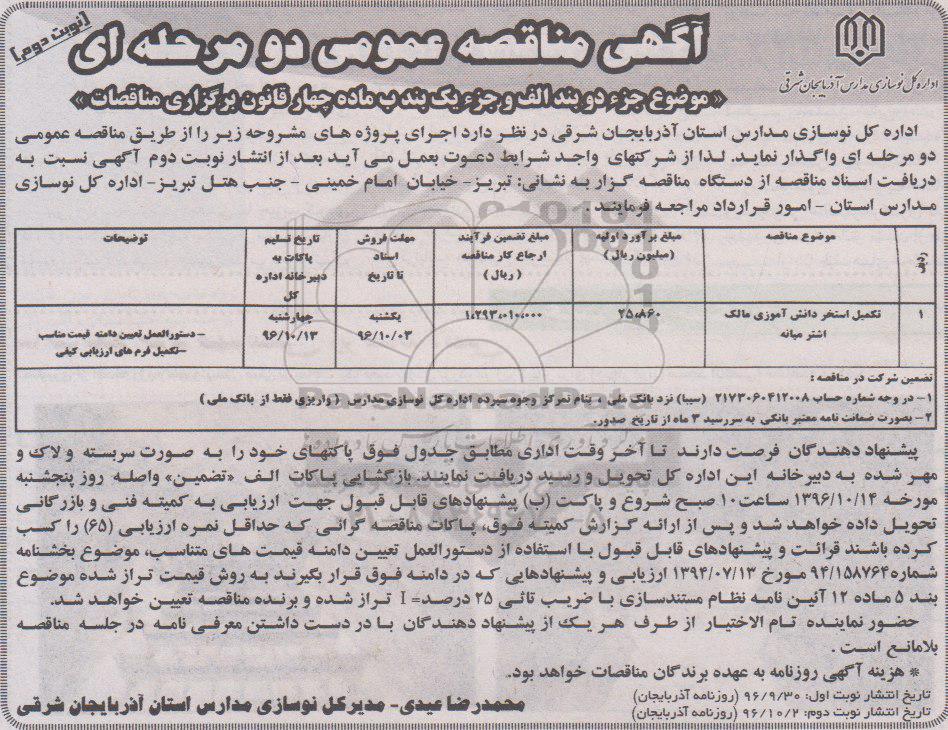 [نوبت دوم]
آگهی مناقصه عمومی دو مرحله ای
اداره کل نوسازی مدارس آذربایجان شرقی
«موضوع جزء دو بند الف و جزء یک بند ب ماده چهار قانون برگزاری مناقصات»
اداره کل نوسازی مدارس استان آذربایجان شرقی در نظر دارد اجرای پروژه های مشروحه زیر را از طریق مناقصه عمومی
دو مرحله ای واگذار نماید. لذا از شرکتهای واجد شرایط دعوت بعمل می آید بعد از انتشار نوبت دوم آگهی نسبت به
دریافت اسناد مناقصه از دستگاه مناقصه گزار به نشانی: تبریز- خیابان امام خمینی - جنب هتل تبریز- اداره کل نوسازی
مدارس استان - امور قرارداد مراجعه فرمایند :
ردیف
موضوع مناقصه
مبلغ برآورد اولیه
(میلیون ریال)
مبلغ تضمین فرآیند
ارجاع کار مناقصه
(ریال)
مهلت فروش
اسناد
تا تاریخ
تاریخ تسلیم
پاکات به
دبیرخانه اداره
کل
توضیحات
۱
تکمیل استخر دانش آموزی مالک
اشتر میانه
۲۵،۸۶۰
۱،۲۹۳،۰۱۰،۰۰۰
یکشنبه
۹۶/۱۰/۰۳
چهارشنبه
۹۶/۱۰/۱۳
- دستورالعمل تعیین دامنه قیمت مناسب
-تکمیل فرم های ارزیابی کیفی
تضمین شرکت در مناقصه :
۱- در وجه شماره حساب ۲۱۷۳۰۶۰۴۱۲۰۰۸ (سیبا) نزد بانک ملی ، بنام تمرکز وجوه سپرده اداره کل نوسازی مدارس (واریزی فقط از بانک ملی )
۲- بصورت ضمانت نامه معتبر بانکی به سررسید ۳ ماه از تاریخ صدور.
ParsNamadData
پیشنهاد دهندگان فرصت دارند تا آخر وقت اداری مطابق جدول فوق پاکتهای خود را به صورت سربسته و لاک و
مهر شده به دبیرخانه این اداره کل تحویل و رسید دریافت نمایند. بازگشایی پاکات الف «تضمین» واصله روز پنجشنبه
مورخه ۱۳۹۶/۱۰/۱۴ ساعت ۱۰ صبح شروع و پاکت (ب) پیشنهادهای قابل قبول جهت ارزیابی به کمیته فنی و بازرگانی
تحویل داده خواهد شد و پس از ارائه گزارش کمیته فوق، پاکات مناقصه گرانی که حداقل نمره ارزیابی (۶۵) را کسب
کرده باشند قرائت و پیشنهادهای قابل قبول با استفاده از دستورالعمل تعیین دامنه قیمت های متناسب، موضوع بخشنامه
شماره ۹۴/۱۵۸۷۶۴ مورخ ۱۳۹۴/۰۷/۱۳ ارزیابی و پیشنهادهایی که در دامنه فوق قرار بگیرند به روش قیمت تراز شده موضوع
بند ۵ ماده ۱۲ آئین نامه نظام مستندسازی با ضریب تاثی ۲۵ درصد= I تراز شده و برنده مناقصه تعیین خواهد شد.
حضور نماینده تام الاختیار از طرف هر یک از پیشنهاد دهندگان با در دست داشتن معرفی نامه در جلسه مناقصه
بلامانع است .
* هزینه آگهی روزنامه به عهده برندگان مناقصات خواهد بود.
تاریخ انتشار نوبت اول: ۹۶/۹/۳۰ (روزنامه آذربایجان)
تاریخ انتشار نوبت دوم: ۹۶/۱۰/۲ (روزنامه آذربایجان)
محمدرضا عیدی- مدیرکل نوسازی مدارس استان آذربایجان شرقی